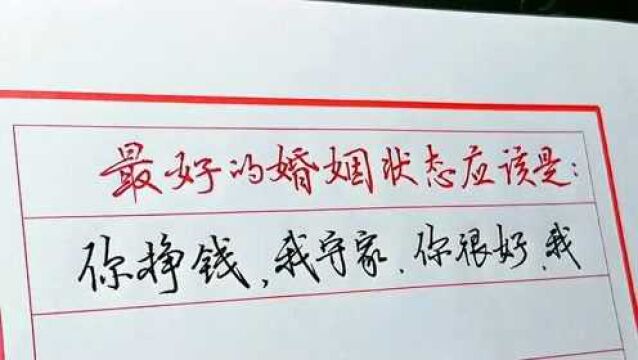 最好的婚姻状态应该是:
你挣钱,我守家、你很好、我